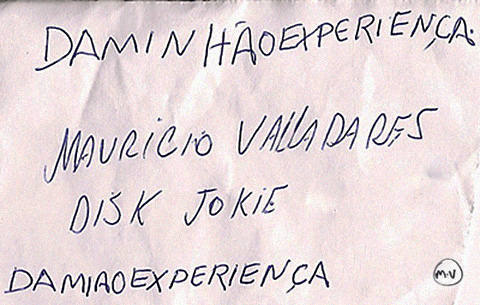 DAMINHÃOEXPERIENÇA.
MAURICIO VALLADARES
DISK JOKIE
DAMIAOEXPERIENÇA
M.V